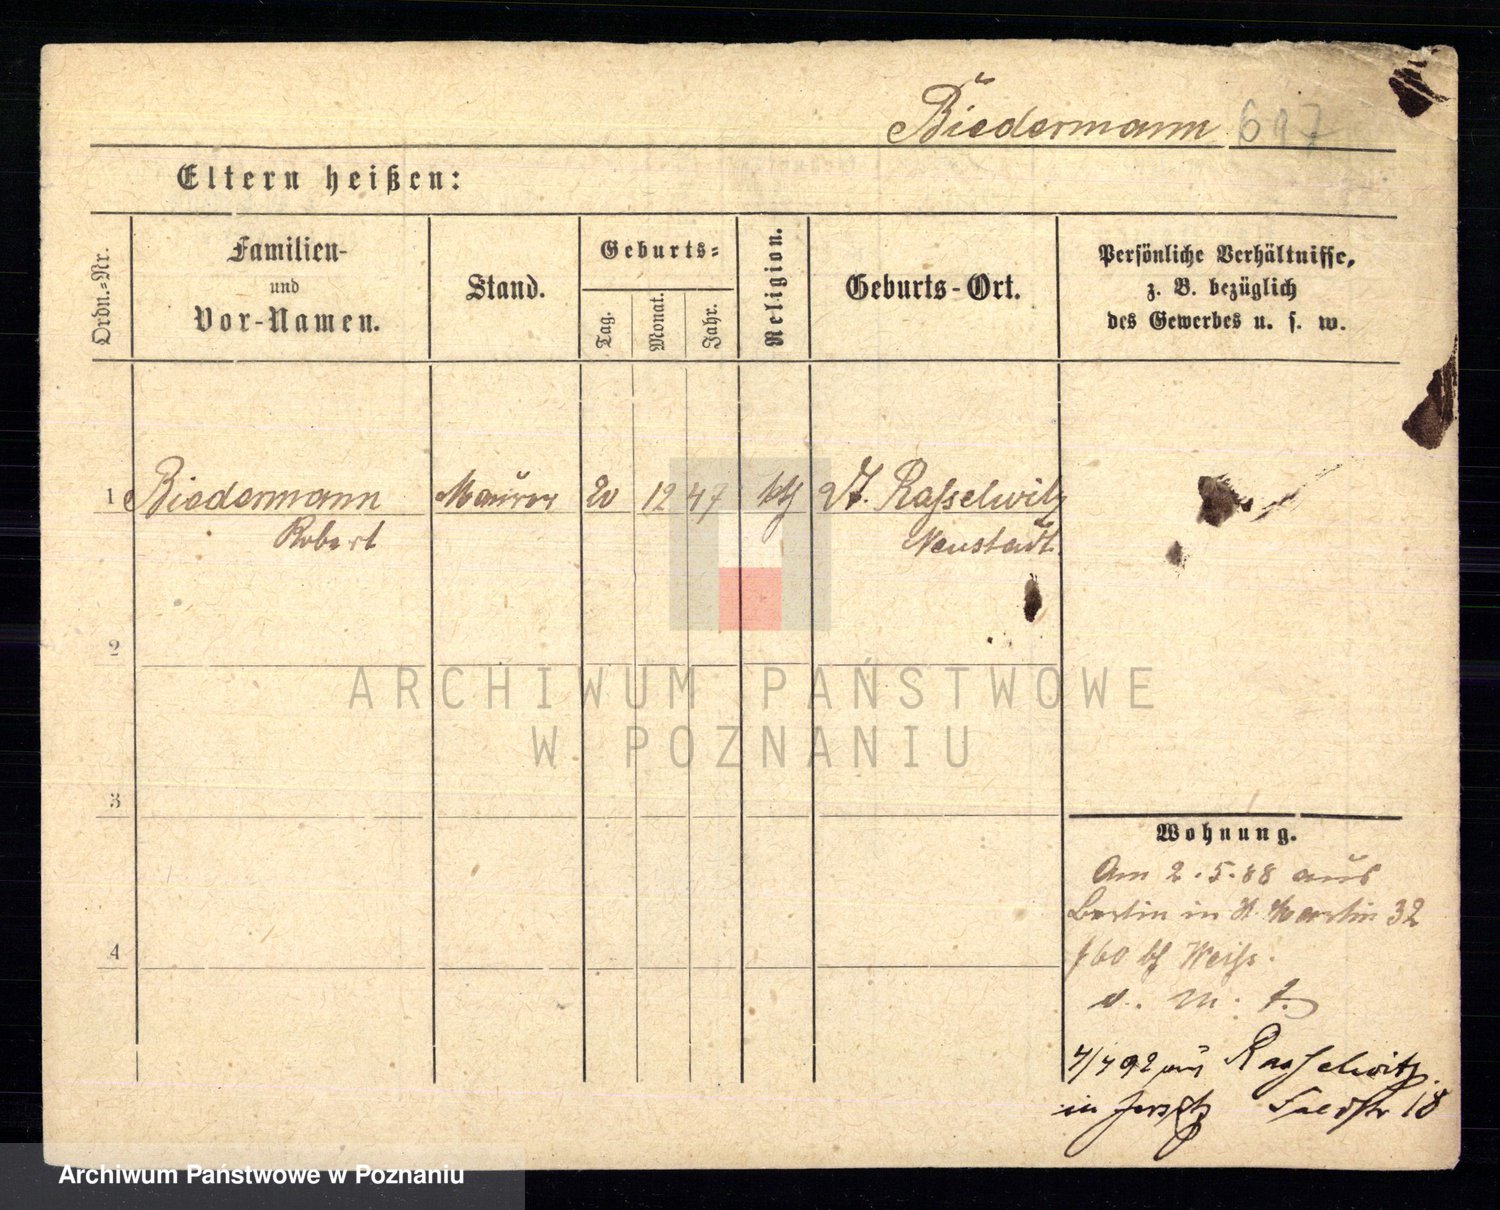 Biedermann 697
Eltern heißen:
Ordn.-Nr.
Familien-
und
Vor-Namen.
Stand.
Geburts-
Tag.
Monat.
Jahr.
Religion.
Geburts-Ort.
Persönliche Verhältnisse,
z. B. bezüglich
des Gewerbes u. s. w.
1 Biedermann Maurer 20 12 47 kth Dt. Rasselwitz
Robert Neustadt
2
3
4
Wohnung.
Am 2.5.88 aus
Berlin in St. Martin 32
bei Weiss.
4/7 92 aus Rasselwitz
in Jersitz Feldstr 18
ARCHIWUM PAŃSTWOWE
W POZNANIU
Archiwum Państwowe w Poznaniu